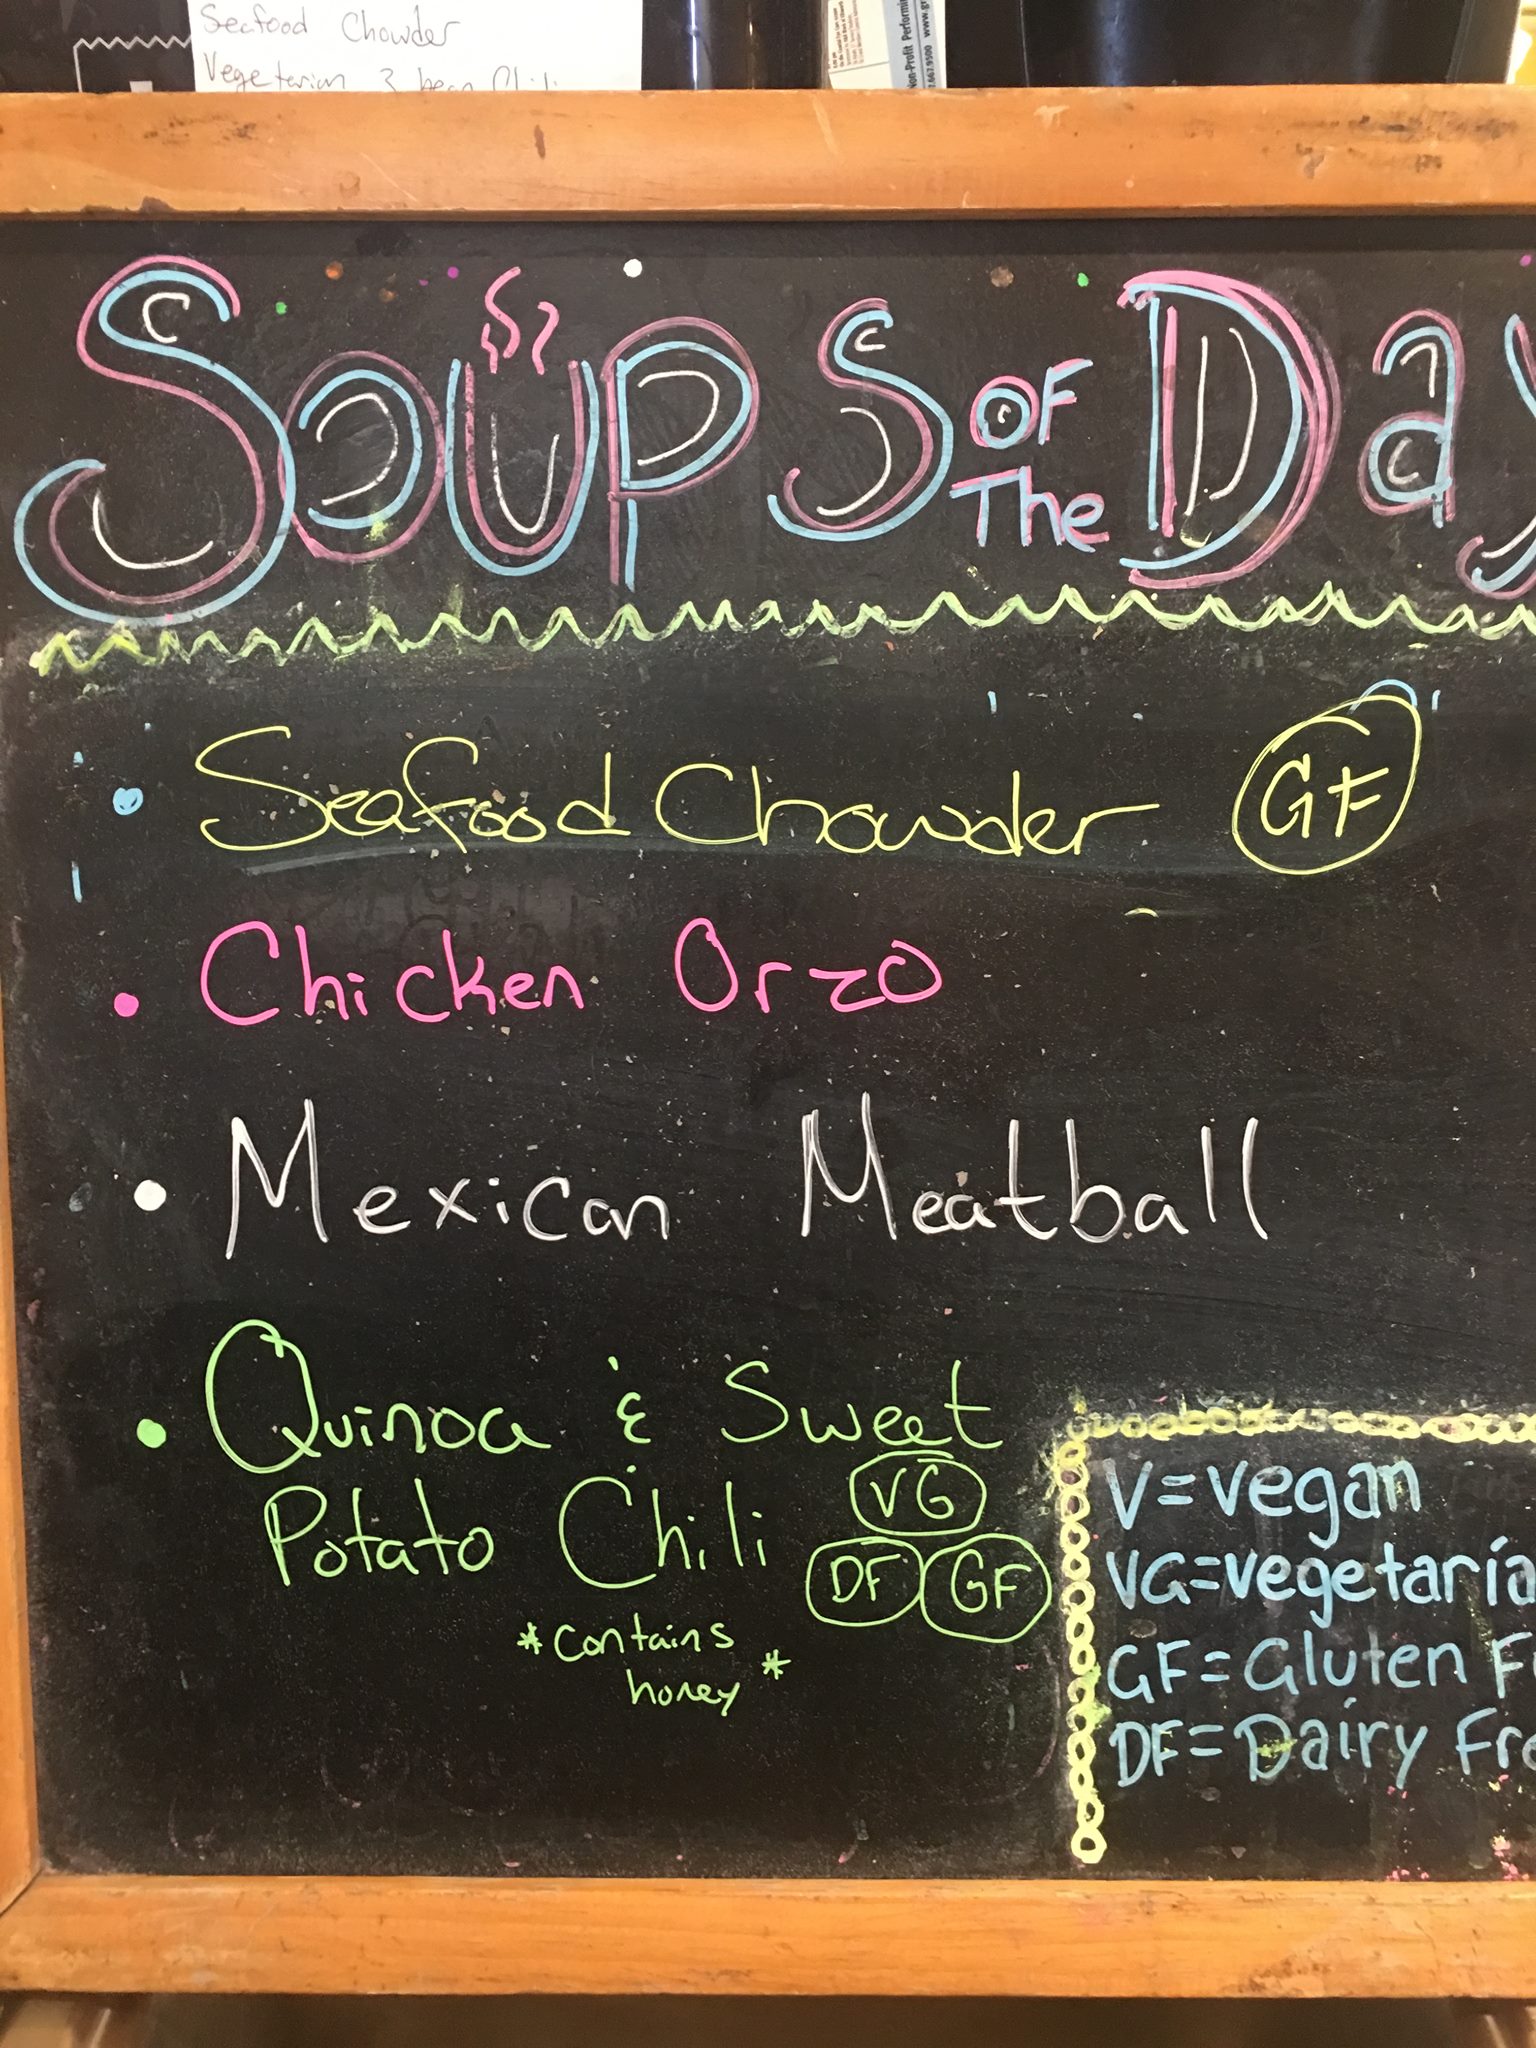 Seafood Chowder
Vegetarian 3 bean Chili
Non-Profit Performing
Soups OF The Day
• Seafood Chowder GF
• Chicken Orzo
• Mexican Meatball
• Quinoa & Sweet
Potato Chili VG
DF GF
*contains
honey*
V=vegan
VG=vegetaria
GF=Gluten Fr
DF=Dairy Fre